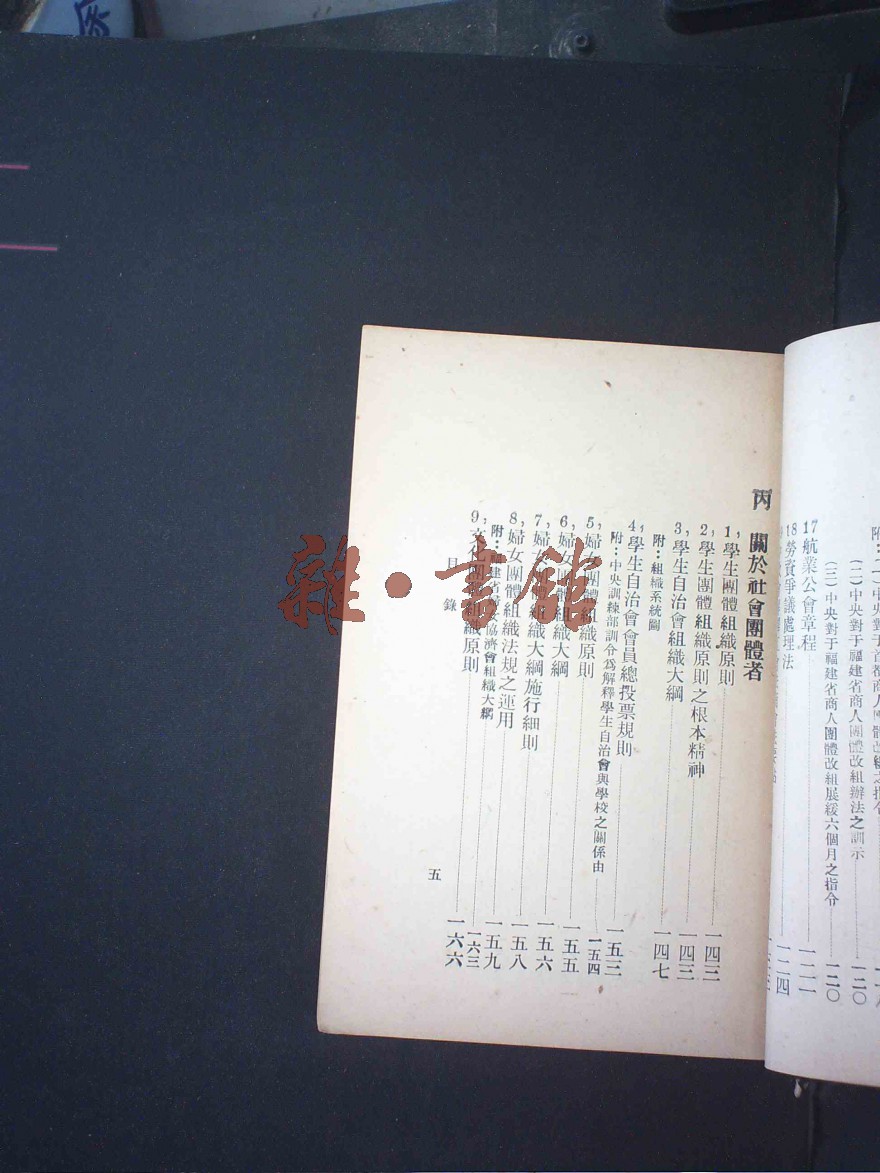 (二)中央對于福建省商人團體改組辦法之訓示……一二〇
(三)中央對于福建省商人團體改組展緩六個月之指令……一二〇
17,航業公會章程……一二一
18,勞資爭議處理法……一二四
丙 關於社會團體者
1,學生團體組織原則……一四三
2,學生團體組織原則之根本精神……一四三
3,學生自治會組織大綱……一四七
附:組織系統圖
4,學生自治會會員總投票規則……一五三
附:中央訓練部訓令爲解釋學生自治會與學校之關係由……一五四
5,婦女團體組織原則……一五五
6,婦女團體組織大綱……一五六
7,婦女團體組織大綱施行細則……一五八
8,婦女團體組織法規之運用……一五九
附:福建省婦女協濟會組織大綱……一六三
9,文化團體組織原則……一六六
目錄
五
雜·書館